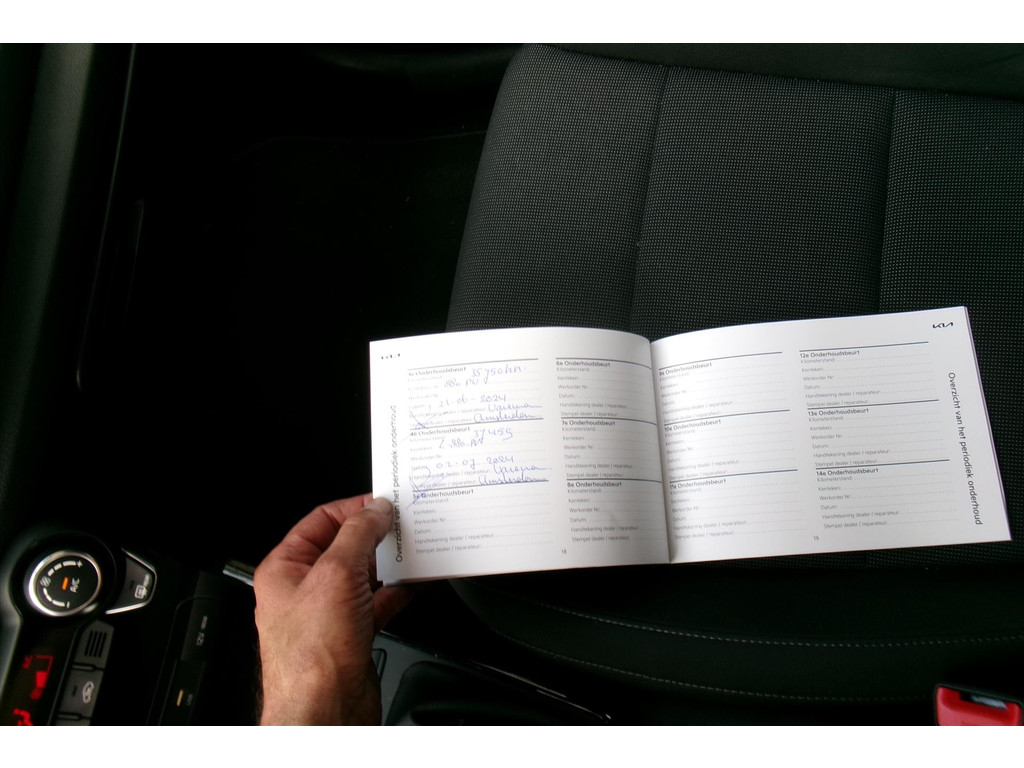 KIA
3e Onderhoudsbeurt
35750km
21-06-2024
Amsterdam
4e Onderhoudsbeurt
37455
02-07-2024
Handtekening dealer / reparateur:
Amsterdam
5e Onderhoudsbeurt
Kilometerstand:
Kenteken:
Werkorder Nr:
Datum:
Handtekening dealer / reparateur:
Stempel dealer / reparateur:
Overzicht van het periodiek onderhoud
6e Onderhoudsbeurt
Kilometerstand:
Kenteken:
Werkorder Nr:
Datum:
Handtekening dealer / reparateur:
Stempel dealer / reparateur:
7e Onderhoudsbeurt
Kilometerstand:
Kenteken:
Werkorder Nr:
Datum:
Handtekening dealer / reparateur:
Stempel dealer / reparateur:
8e Onderhoudsbeurt
Kilometerstand:
Kenteken:
Werkorder Nr:
Datum:
Handtekening dealer / reparateur:
Stempel dealer / reparateur:
18
KIA
9e Onderhoudsbeurt
Kilometerstand:
Kenteken:
Werkorder Nr:
Datum:
Handtekening dealer / reparateur:
Stempel dealer / reparateur:
10e Onderhoudsbeurt
Kilometerstand:
Kenteken:
Werkorder Nr:
Datum:
Handtekening dealer / reparateur:
Stempel dealer / reparateur:
11e Onderhoudsbeurt
Kilometerstand:
Kenteken:
Werkorder Nr:
Datum:
Handtekening dealer / reparateur:
Stempel dealer / reparateur:
12e Onderhoudsbeurt
Kilometerstand:
Kenteken:
Werkorder Nr:
Datum:
Handtekening dealer / reparateur:
Stempel dealer / reparateur:
13e Onderhoudsbeurt
Kilometerstand:
Kenteken:
Werkorder Nr:
Datum:
Handtekening dealer / reparateur:
Stempel dealer / reparateur:
14e Onderhoudsbeurt
Kilometerstand:
Kenteken:
Werkorder Nr:
Datum:
Handtekening dealer / reparateur:
Stempel dealer / reparateur:
19
Overzicht van het periodiek onderhoud
A/C